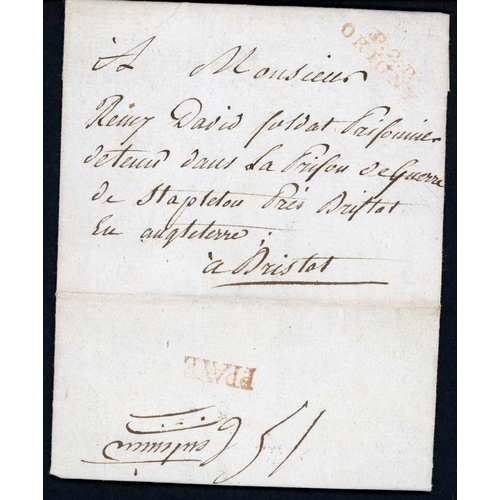 P.2.P.
ORIGNY
A Monsieur
Remy David soldat Prisonnier
detenu dans La Prison de Guerre
de Stapleton Près Bristot
En angleterre ;
à Bristot
PPAYE